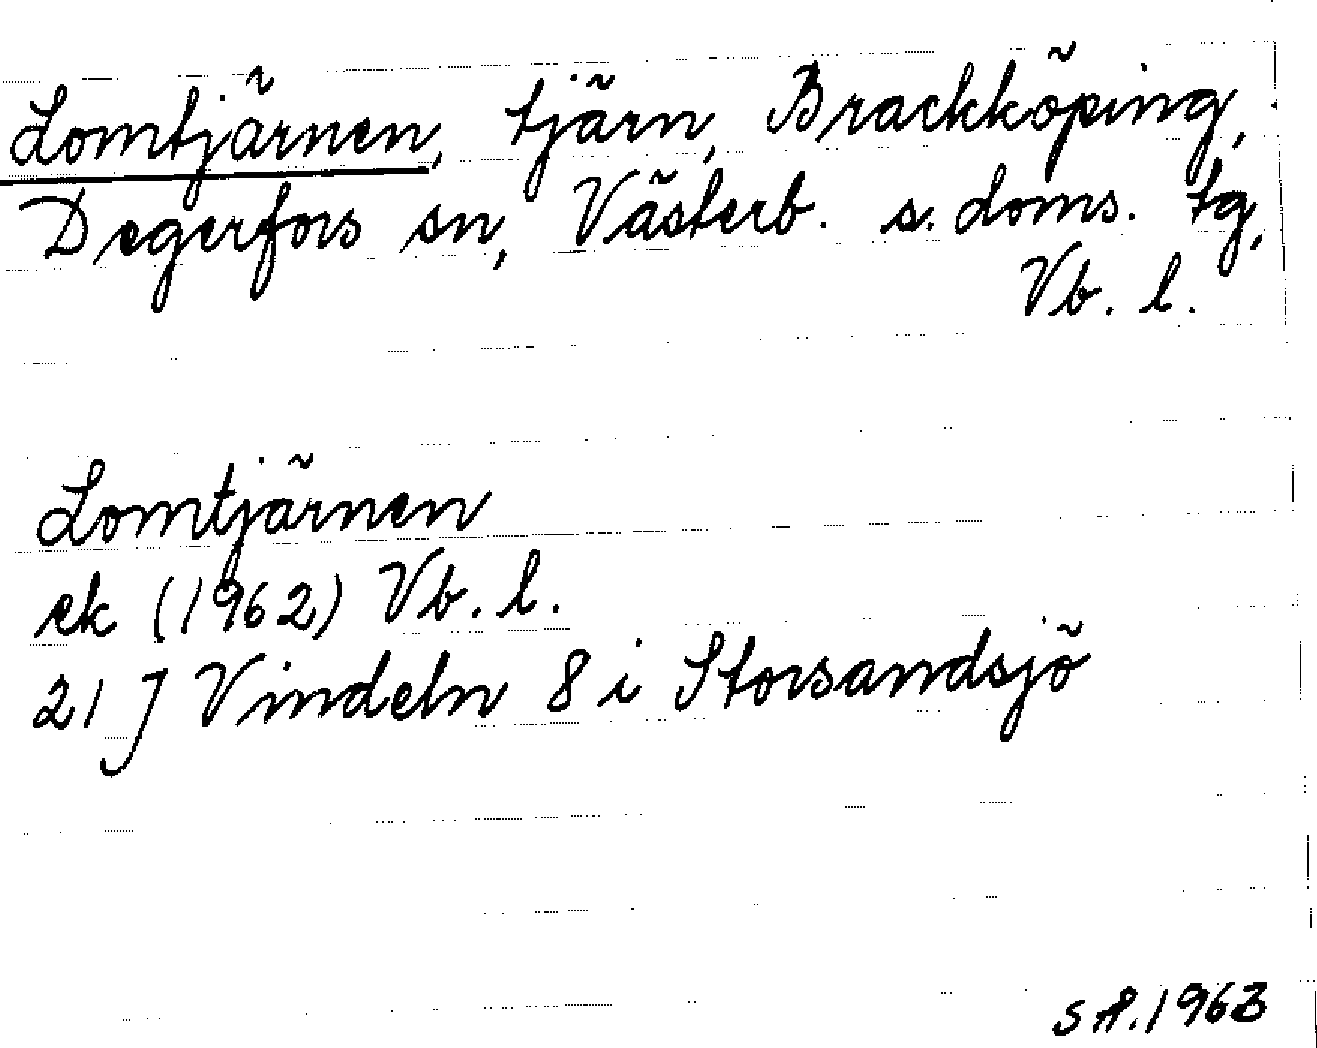 Lomtjärnen, tjärn, Brackköping,
Degerfors sn, Västerb. s. doms. tg,
Vb. l.
Lomtjärnen
ek (1962) Vb. l.
21 J Vindeln 8 i Storsandsjö
SA. 1963